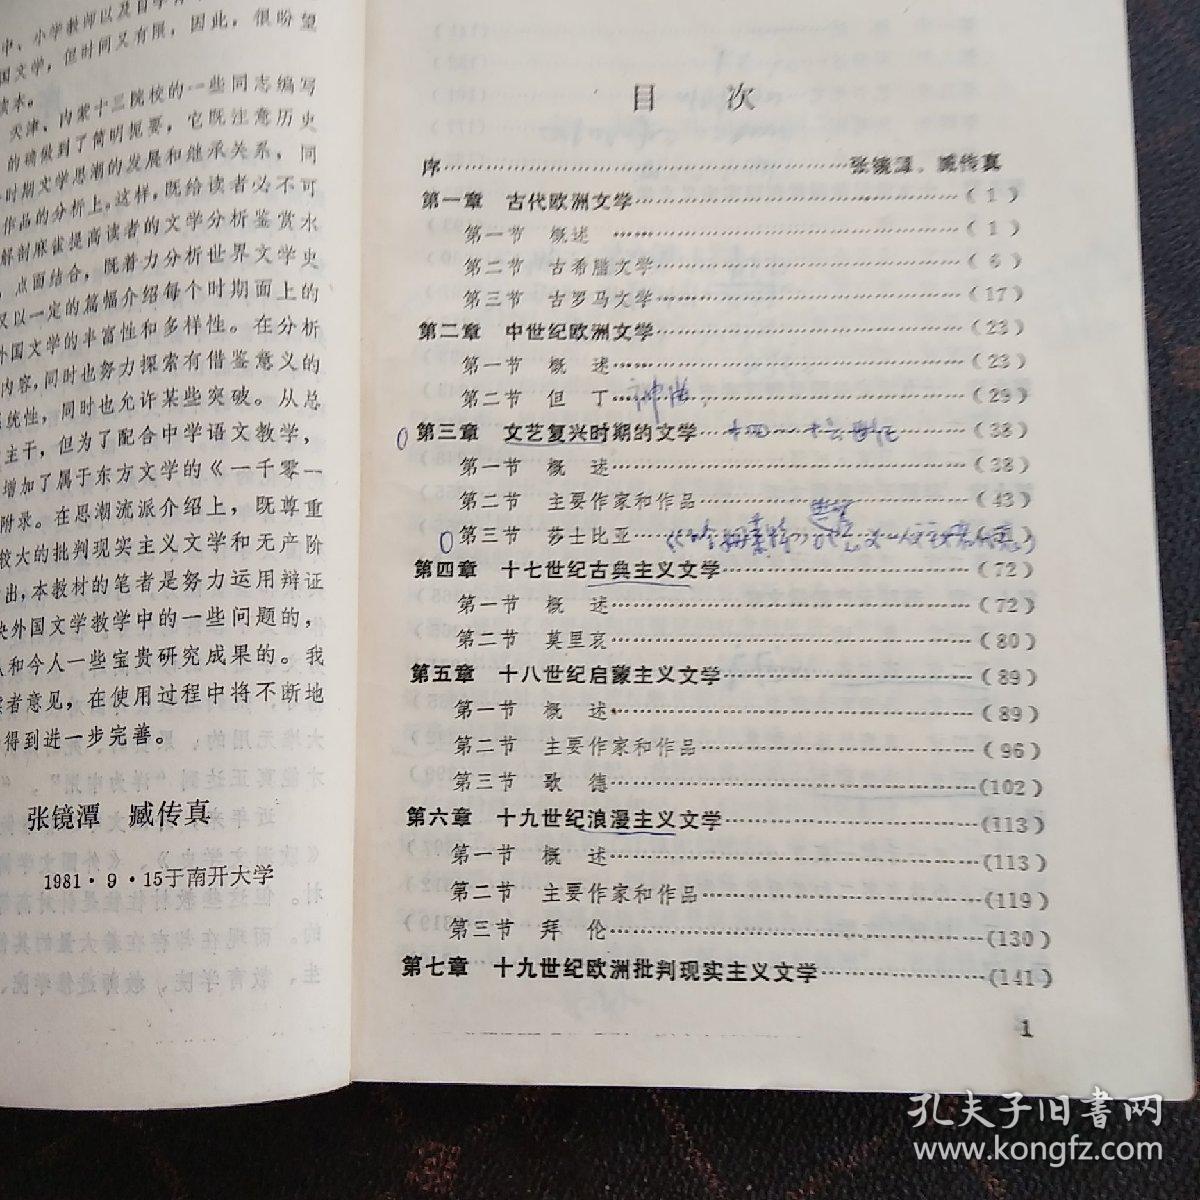 中、小学教师以及自学
国文学，但时间又有限，因此，很盼望
读本。
天津、内蒙十三院校的一些同志编写
的确做到了简明扼要，它既注意历史
时期文学思潮的发展和继承关系，同
作品的分析上。这样，既给读者必不可
解剖麻雀提高读者的文学分析鉴赏水
，点面结合，既着力分析世界文学史
又以一定的篇幅介绍每个时期面上的
外国文学的丰富性和多样性。在分析
内容，同时也努力探索有借鉴意义的
系统性，同时也允许某些突破。从总
主干，但为了配合中学语文教学，
增加了属于东方文学的《一千零一
附录。在思潮流派介绍上，既尊重
较大的批判现实主义文学和无产阶
出，本教材的笔者是努力运用辩证
决外国文学教学中的一些问题的，
人和今人一些宝贵研究成果的。我
读者意见，在使用过程中将不断地
得到进一步完善。
张镜潭 臧传真
1981·9·15于南开大学
目 次
序……张镜潭、臧传真
第一章 古代欧洲文学……（1）
第一节 概述……（1）
第二节 古希腊文学……（6）
第三节 古罗马文学……（17）
第二章 中世纪欧洲文学……（23）
第一节 概 述……（23）
第二节 但 丁……（29）
神曲
第三章 文艺复兴时期的文学……（33）
第一节 概 述……（33）
第二节 主要作家和作品……（43）
第三节 莎士比亚
第四章 十七世纪古典主义文学……（72）
第一节 概 述……（72）
第二节 莫里哀……（80）
第五章 十八世纪启蒙主义文学……（89）
第一节 概 述……（89）
第二节 主要作家和作品……（96）
第三节 歌 德……（102）
第六章 十九世纪浪漫主义文学……（113）
第一节 概 述……（113）
第二节 主要作家和作品……（119）
第三节 拜 伦……（130）
第七章 十九世纪欧洲批判现实主义文学……（141）
1
孔夫子旧书网
www.kongfz.com